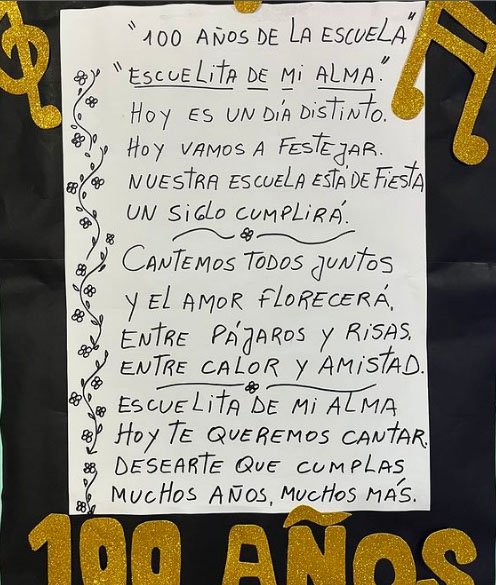 "100 AÑOS DE LA ESCUELA"
"ESCUELITA DE MI ALMA."
HOY ES UN DÍA DISTINTO.
HOY VAMOS A FESTEJAR.
NUESTRA ESCUELA ESTÁ DE FIESTA
UN SIGLO CUMPLIRÁ.
CANTEMOS TODOS JUNTOS
Y EL AMOR FLORECERÁ,
ENTRE PÁJAROS Y RISAS,
ENTRE CALOR Y AMISTAD.
ESCUELITA DE MI ALMA
HOY TE QUEREMOS CANTAR,
DESEARTE QUE CUMPLAS
MUCHOS AÑOS, MUCHOS MÁS.
100 AÑOS